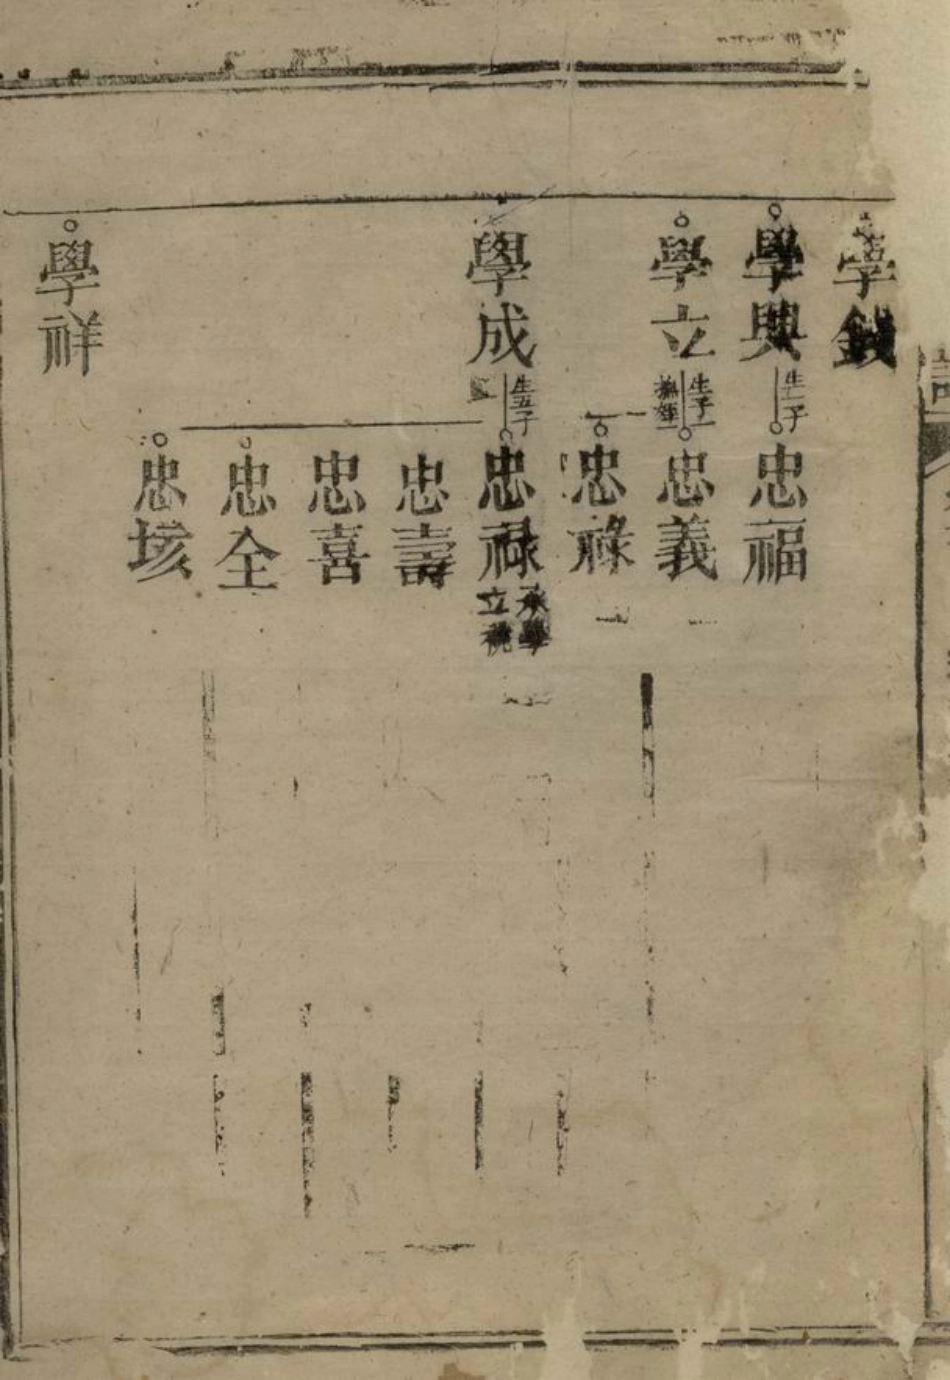 學錢
學興
生一子
忠福
學立
生子一
撫姪
忠義
忠祿
學成
生五子
忠禄
承學
立祧
忠壽
忠喜
忠全
忠垓
學祥